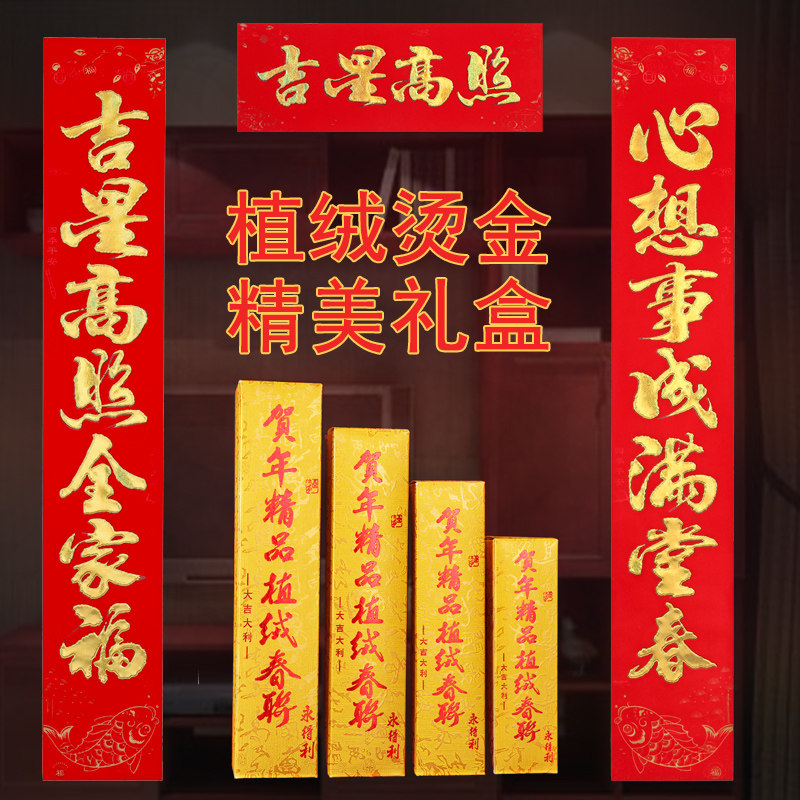 吉星高照
吉星高照全家福
心想事成满堂春
大吉大利
植绒烫金
精美礼盒
贺年精品植绒春联
大吉大利
永得利
贺年精品植绒春联
大吉大利
贺年精品植绒春联
大吉大利
永得利
贺年精品植绒春联
大吉大利
永得利
福
福